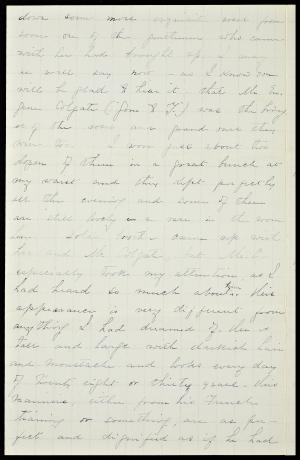 down some more exquisite roses from
some one of the gentlemen who came
with her had brought up - and
as well say now - as I know you
will be glad to hear it, that Mr Eu-
gene Colgate (Jim & J.) was the bring
er of the roses, and grand ones they
were too. I wore just about two
dozen of them in a great bunch at
my waist and they kept perfectly
all the evening and some of them
are still lovely in a vase in the room
here. Solon came up with
her and Mr Colgate, but Mr. C.
especially took my attention as I
had heard so much about him. His
appearance is very different from
anything I had dreamed of. He is
tall and large with darkish hair
and moustache and looks every day
of twenty eight or thirty years. His
manners, either from his French
training or something, are as per-
fect and dignified as if he had